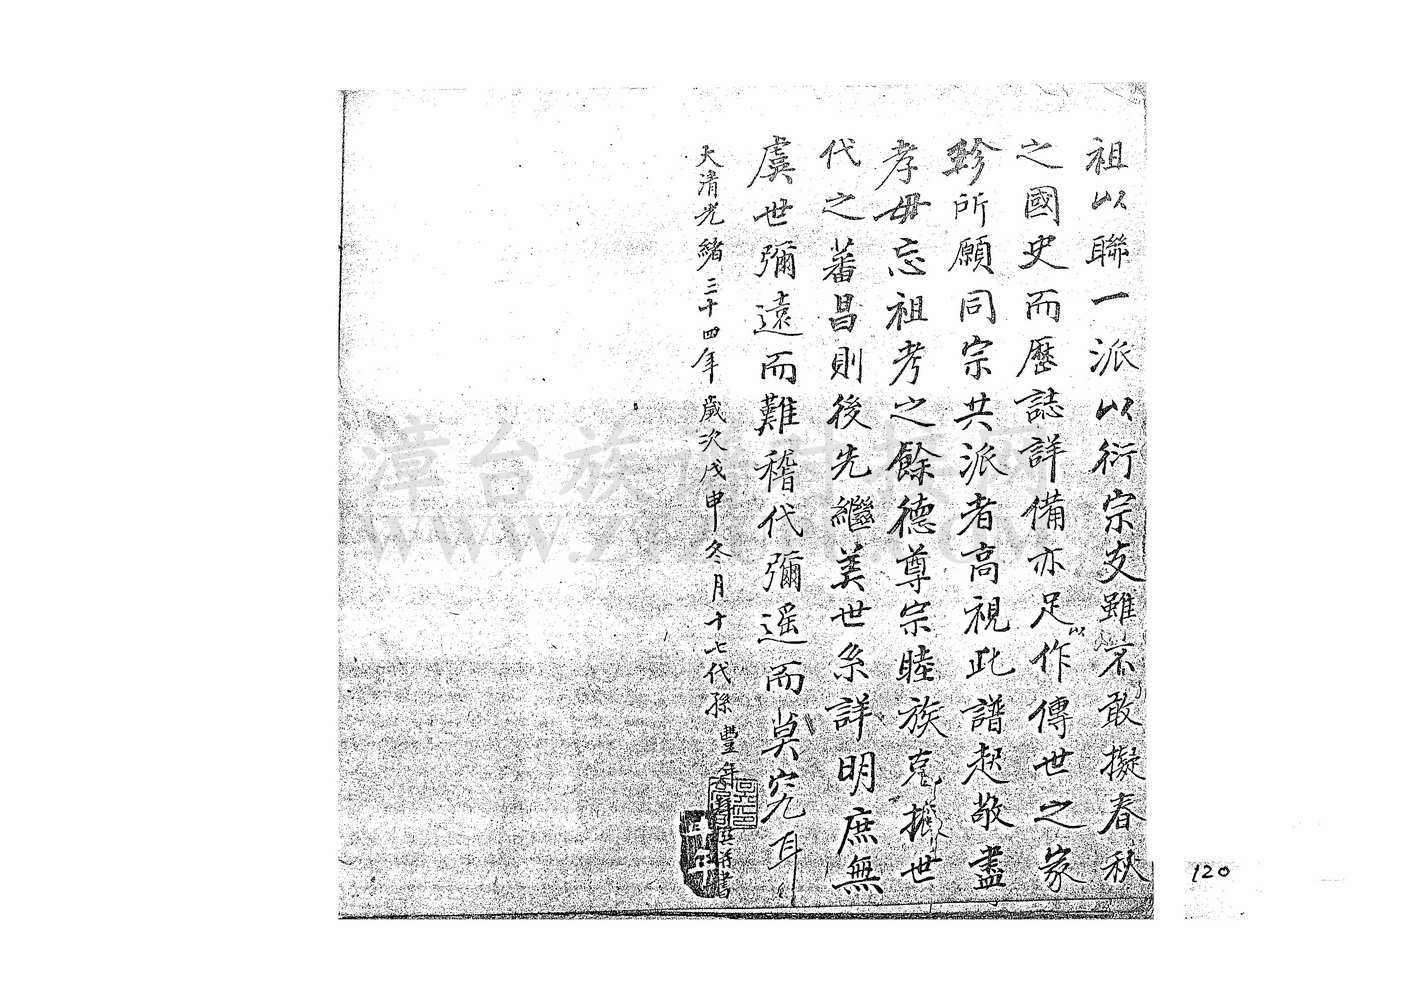 祖以聯一派以衍宗支雖不敢擬春秋
之國史而歷誌詳備亦足以作傳世之家
所願同宗共派者高視此譜起敬盡
孝毋忘祖考之餘德尊宗睦族克振世
代之蕃昌則後先繼美世系詳明庶無
虞世彌遠而難稽代彌遙而莫究耳
大清光緒三十四年歲次戊申冬月十七代孫豐年書
漳台族谱对接网
120